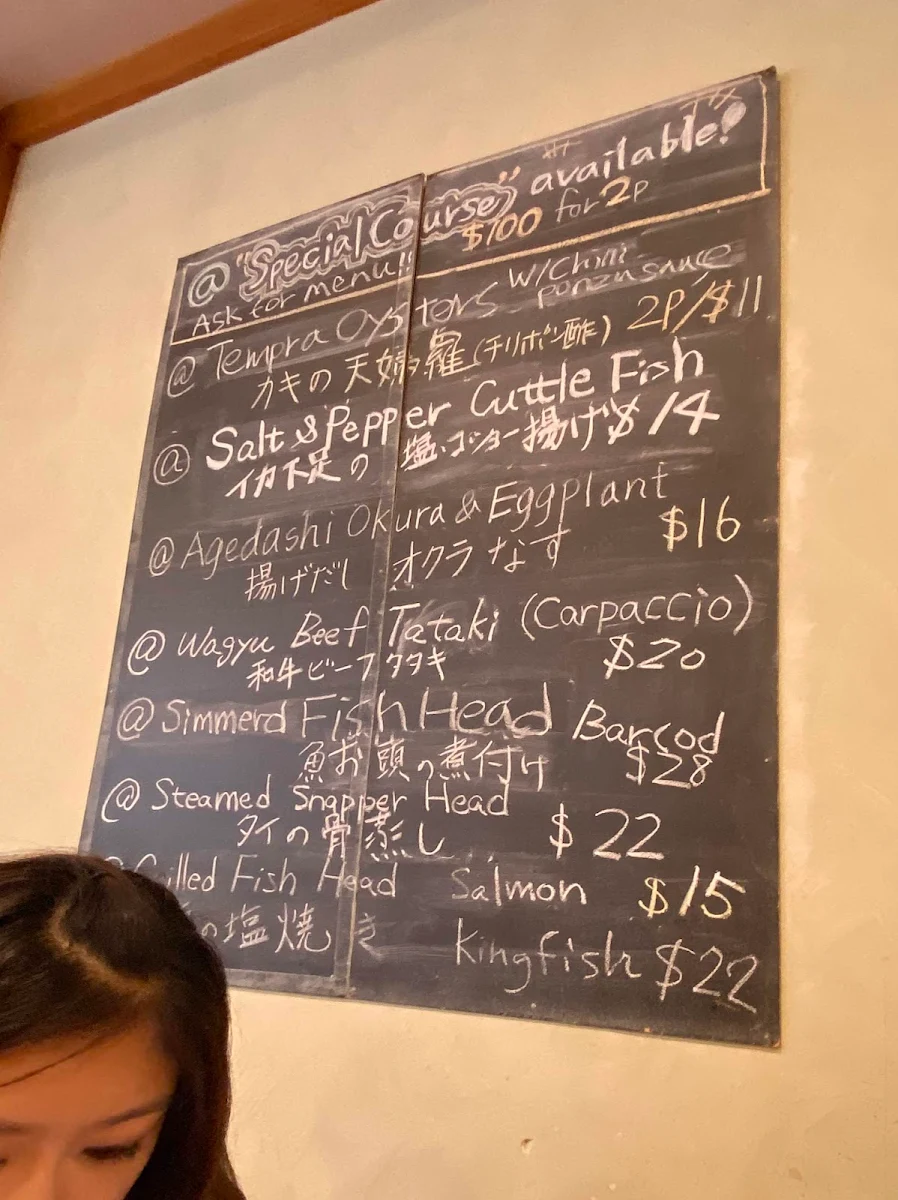 @ "Special Course" available!
Ask for menu!! $100 for 2p
@ Tempra Oysters w/Chiri ponzu sauce
カキの天婦羅(チリポン酢) 2P/$11
@ Salt & Pepper Cuttle Fish
イカ下足の塩・コショー揚げ $14
@ Agedashi Okura & Eggplant
揚げだし オクラ なす $16
@ Wagyu Beef Tataki (Carpaccio)
和牛ビーフタタキ $20
@ Simmerd Fish Head Barcod
魚お頭の煮付け $28
@ Steamed Snapper Head
タイの骨蒸し $22
illed Fish Head Salmon $15
の塩焼き Kingfish $22